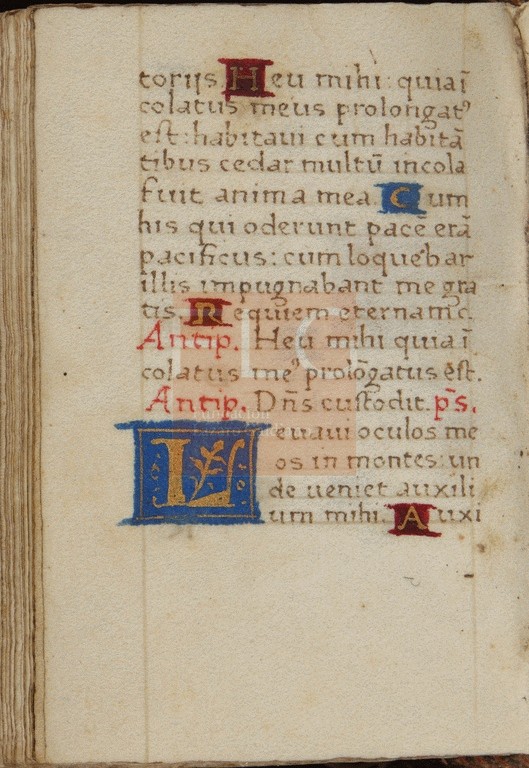 torijs. Heu mihi: quia ī
colatus meus prolongatꝰ
est: habitaui cum habitā
tibus cedar multū incola
fuit anima mea. Cum
his qui oderunt pacē erā
pacificus: cum loquebar
illis impugnabant me gra
tis. Requiem eternam.
Antip. Heu mihi quia ī
colatus meꝰ prolōgatus est.
Antip. Dn̄s custodit. p̄s.
Leuaui oculos me
os in montes: un
de ueniet auxili
um mihi. Auxi